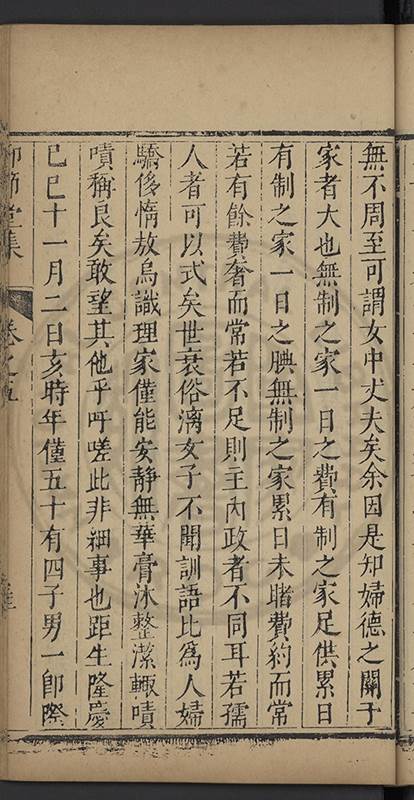 無不周至可謂女中丈夫矣余因是知婦德之關于
家者大也無制之家一日之費有制之家足供累日
有制之家一日之腆無制之家累日未睹費約而常
若有餘費奢而常若不足則主內政者不同耳若孺
人者可以式矣世衰俗漓女子不聞訓語比爲人婦
驕侈惰敖烏識理家僅能安靜無華膏沐整潔輙嘖
嘖稱良矣敢望其他乎吁嗟此非細事也距生隆慶
己巳十一月二日亥時年僅五十有四子男一卽際
節堂集
卷之五